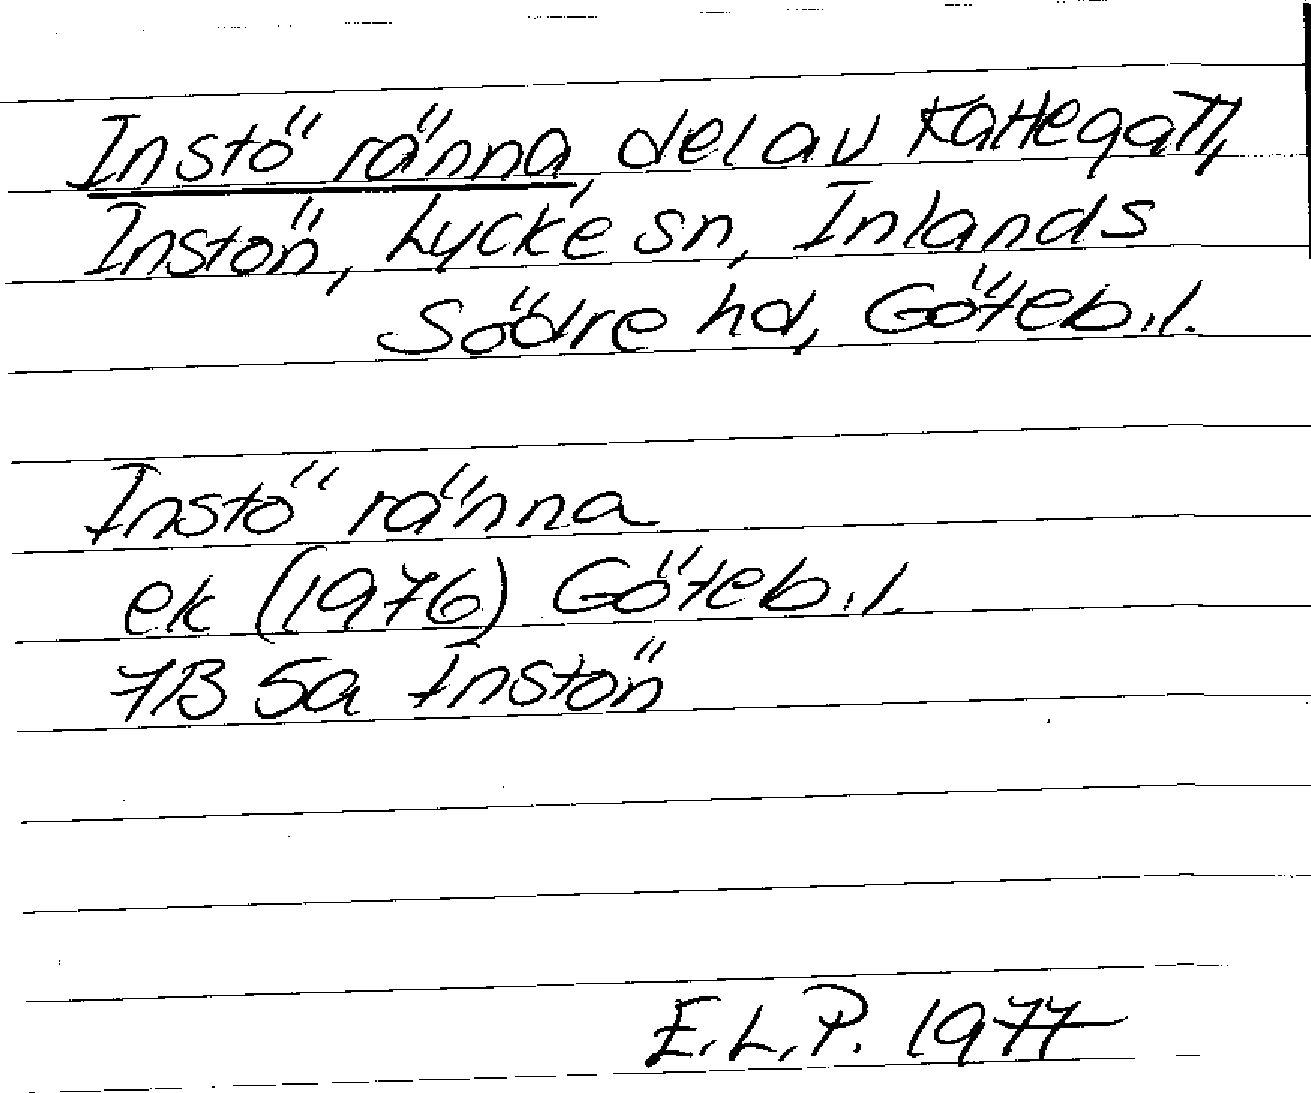 Instö ränna, del av Kattegatt,
Instön, Lycke sn, Inlands
Södre hd, Göteb. l.
Instö ränna
ek (1976) Göteb. l.
7B 5a Instön
E.L.P. 1977